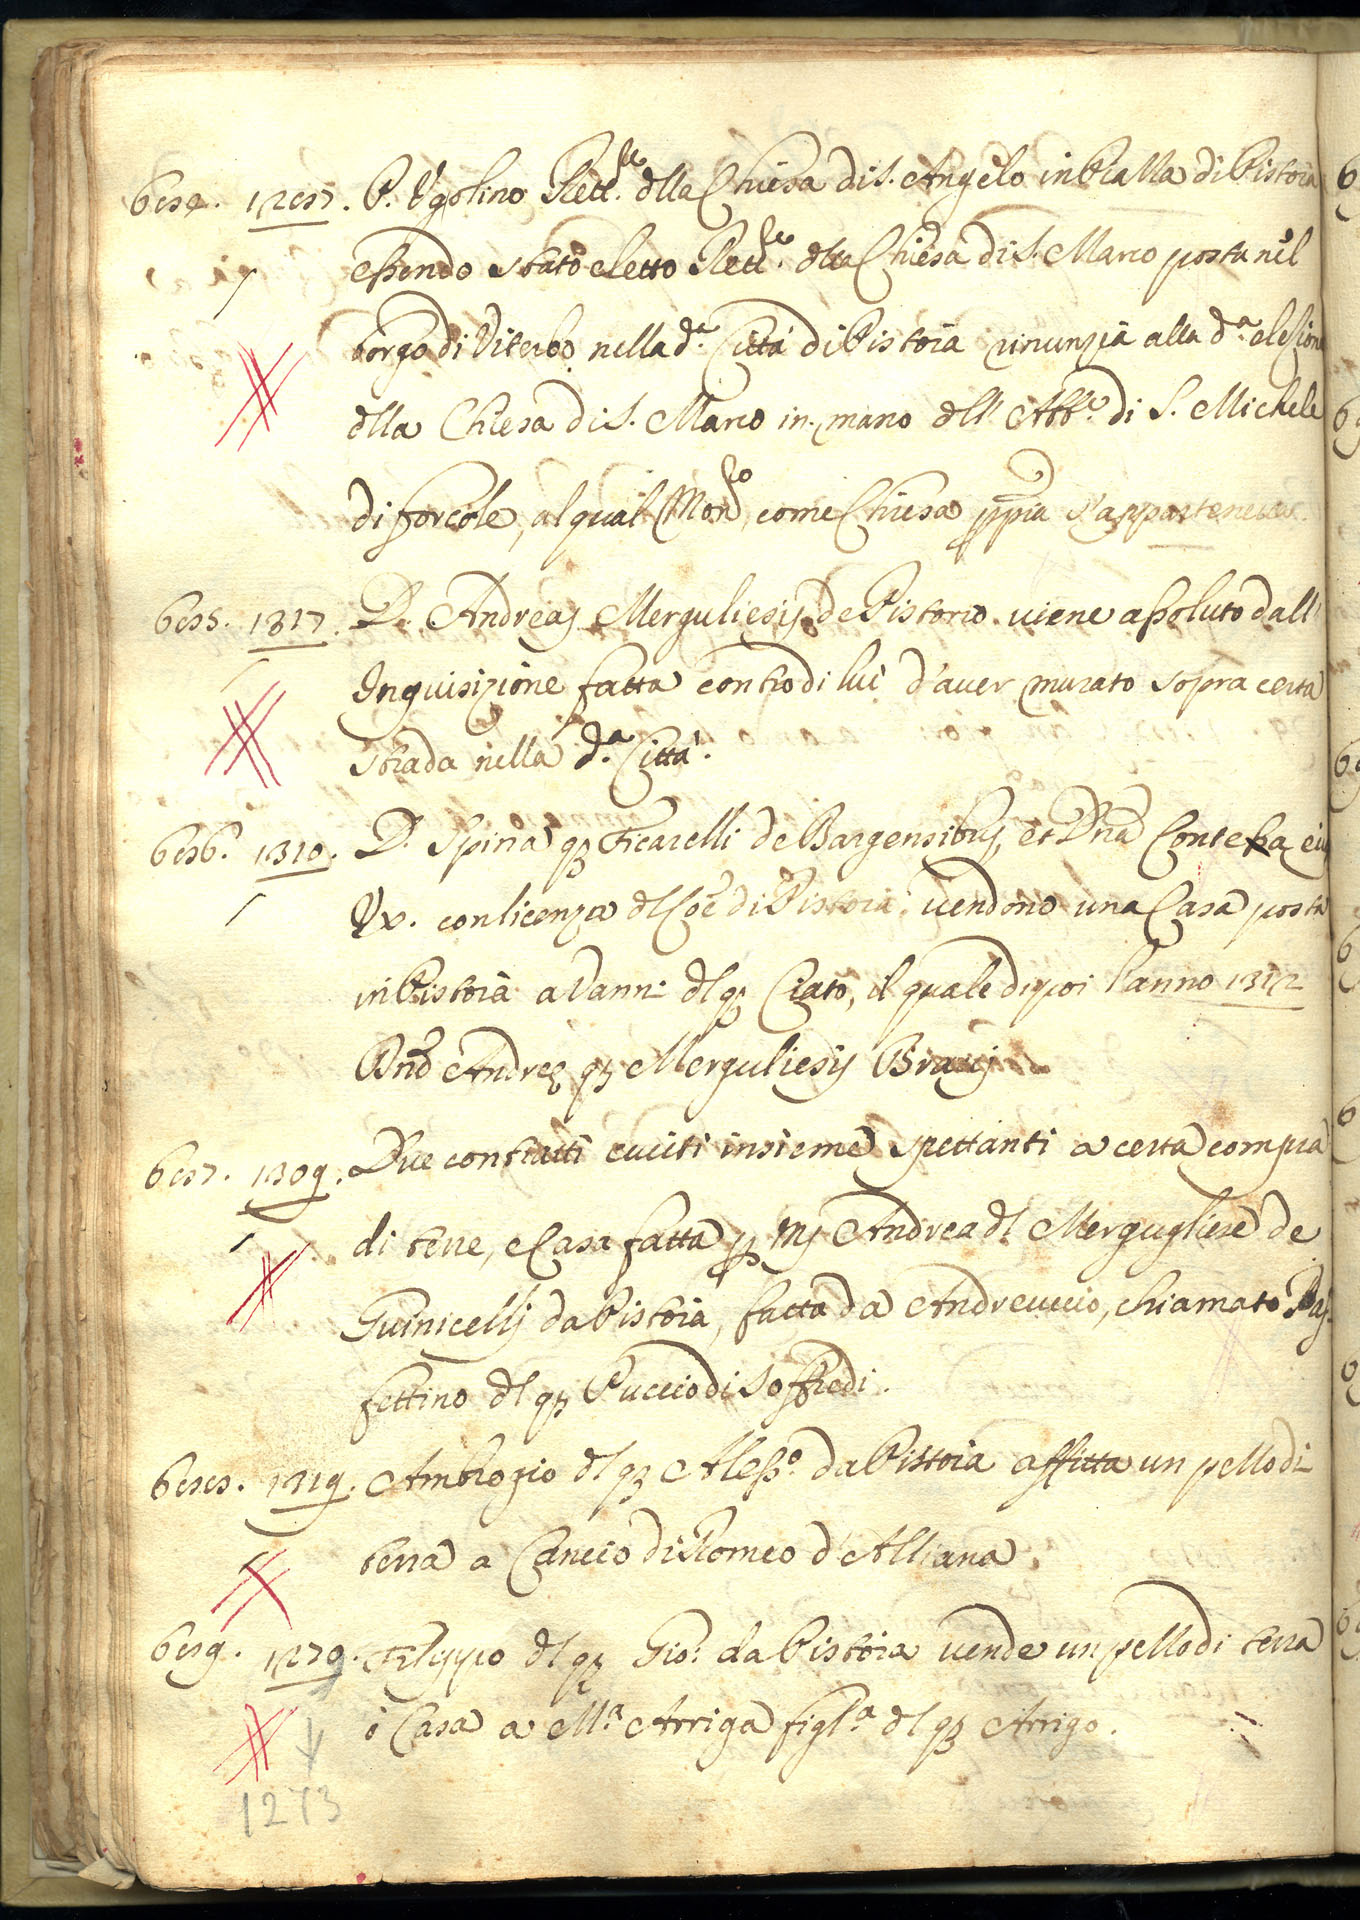 684. 1287. P. Ugolino Rett.re dlla Chiesa di S. Angelo in Bialla di Pistoia
essendo stato eletto Rett.re dlla Chiesa di S. Marco posta nel
borgo di Viterbo nella d.a Città di Pistoia rinunzia alla d.a elezione
dlla Chiesa di S. Marco in mano dll' Abb.e di S. Michele
di forcole, al qual Mon.ro, come Chiesa ppia s'apparteneva.
685. 1317. D. Andreas Merguliesis de Pistorio viene assoluto dall'
Inquisizione fatta contro di lui d'aver murato sopra certa
strada nella d.a Città.
686. 1310. D. Spina q3 Ficarelli de Bargensibus, et Dna Contessa eius
Ux. con licenza dl Coe di Pistoia vendono una Casa posta
in Pistoia a Vanni dl q3 Ciato, il quale dipoi l'anno 1312
Dno Andree q3 Merguliesis Braij
687. 1309. Due contratti cuciti insieme spettanti a certa compra
di terre, e Casa fatta p Mj Andrea dl Mergugliese de
Guinicellj da Pistoia, fatta da Andreuccio, chiamato Paj
fettino dl q3 Puccio di Soffredi.
688. 1319. Ambrogio dl q3 Aless.o da Pistoia affitta un pezzo di
terra a Cancio di Romeo d'Alliana.
689. 1279. Filippo dl q3 Gio: da Pistoia vende un pezzo di terra
ò Casa a M.a Arriga figl.a dl q3 Arrigo.
1273